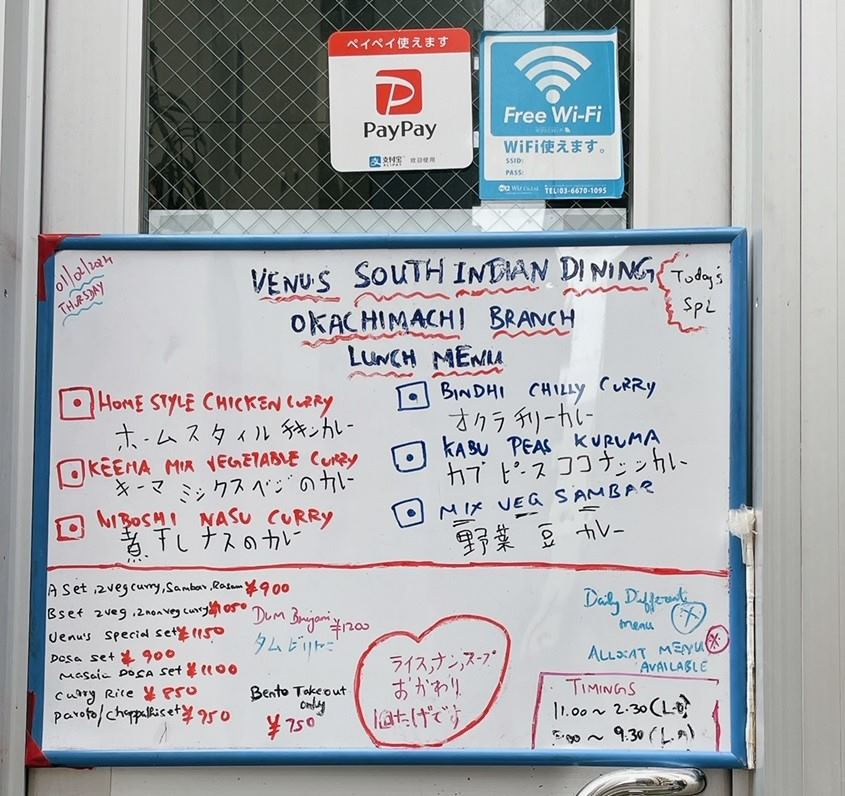 ペイペイ使えます
PayPay
支付宝
ALIPAY
欢迎使用
Free Wi-Fi
WiFi使えます。
SSID:
PASS:
TEL:03-6670-1095
01/02/2024
THURSDAY
VENU'S SOUTH INDIAN DINING
OKACHIMACHI BRANCH
LUNCH MENU
Today's
SPL
HOME STYLE CHICKEN CURRY
ホームスタイルチキンカレー
KEEMA MIX VEGETABLE CURRY
キーマ ミックスベジのカレー
NIBOSHI NASU CURRY
煮干しナスのカレー
BINDHI CHILLY CURRY
オクラチリーカレー
KABU PEAS KURUMA
カブピースココナッツカレー
MIX VEG SAMBAR
野菜豆カレー
A Set ,2veg curry, Sambar, Rasam ¥900
B set 2veg ,2nonveg curry ¥1050
Venu's special set ¥1150
Dosa set ¥900
Masala DOSA set ¥1100
Curry Rice ¥850
paroto/chappathi set ¥950
Dum Briyani ¥1200
タムビリヤニ
Bento Takeout
only
¥750
ライス,ナン,スープ
おかわり
1回だけです
Daily Different
menu
ALLCAT MENU
AVAILABLE
TIMINGS
11.00 ~ 2.30 (L.O)
5:00 ~ 9.30 (L.O)